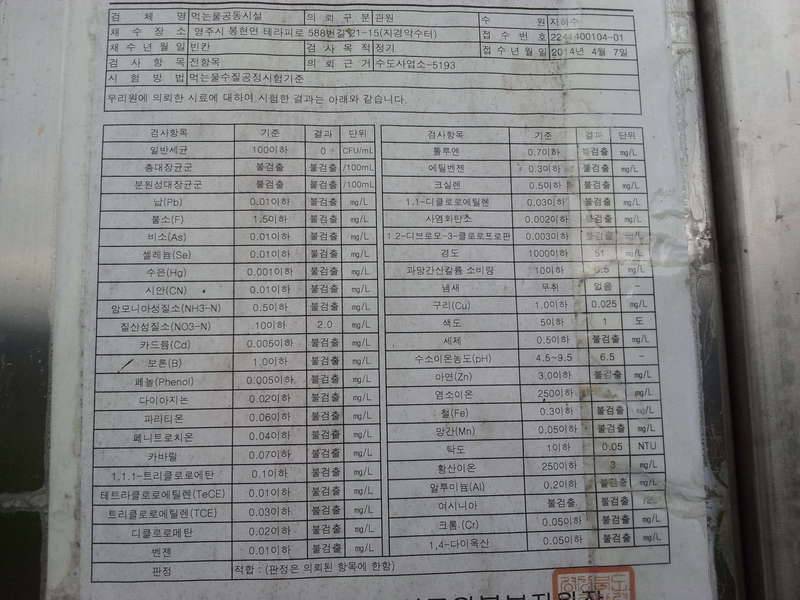 검 체 명 먹는물공동시설 의 뢰 구 분 관원 수 원 지하수
채 수 장 소 영주시 봉현면 테라피로 588번길 21-15(지경약수터) 접 수 번 호
채 수 년 월 일 빈칸 검 사 목 적 정기 접 수 년 월 일 2014년 4월 7일
검 사 항 목 전항목 의 뢰 근 거 수도사업소-5193
시 험 방 법 먹는물수질공정시험기준
우리원에 의뢰한 시료에 대하여 시험한 결과는 아래와 같습니다.
검사항목 기준 결과 단위 검사항목 기준 결과 단위
일반세균 100이하 0 CFU/mL 톨루엔 0.7이하 불검출 mg/L
총대장균군 불검출 불검출 /100mL 에틸벤젠 0.3이하 불검출 mg/L
분원성대장균군 불검출 불검출 /100mL 크실렌 0.5이하 불검출 mg/L
납(Pb) 0.01이하 불검출 mg/L 1.1-디클로로에틸렌 0.03이하 불검출 mg/L
불소(F) 1.5이하 불검출 mg/L 사염화탄소 0.002이하 불검출 mg/L
비소(As) 0.01이하 불검출 mg/L 1.2-디브로모-3-클로로프로판 0.003이하 불검출 mg/L
셀레늄(Se) 0.01이하 불검출 mg/L 경도 1000이하 51 mg/L
수은(Hg) 0.001이하 불검출 mg/L 과망간산칼륨 소비량 10이하 0.5 mg/L
시안(CN) 0.01이하 불검출 mg/L 냄새 무취 없음 -
암모니아성질소(NH3-N) 0.5이하 불검출 mg/L 구리(Cu) 1.0이하 0.025 mg/L
질산성질소(NO3-N) 10이하 2.0 mg/L 색도 5이하 1 도
카드뮴(Cd) 0.005이하 불검출 mg/L 세제 0.5이하 불검출 mg/L
보론(B) 1.0이하 불검출 mg/L 수소이온농도(pH) 4.5~9.5 6.5 -
페놀(Phenol) 0.005이하 불검출 mg/L 아연(Zn) 3.0이하 불검출 mg/L
다이아지논 0.02이하 불검출 mg/L 염소이온 250이하 불검출 mg/L
파라티온 0.06이하 불검출 mg/L 철(Fe) 0.3이하 불검출 mg/L
페니트로치온 0.04이하 불검출 mg/L 망간(Mn) 0.05이하 불검출 mg/L
카바릴 0.07이하 불검출 mg/L 탁도 1이하 0.05 NTU
1.1.1-트리클로로에탄 0.1이하 불검출 mg/L 황산이온 250이하 3 mg/L
테트라클로로에틸렌(TeCE) 0.01이하 불검출 mg/L 알루미늄(Al) 0.2이하 불검출 mg/L
트리클로로에틸렌(TCE) 0.03이하 불검출 mg/L 여시니아 불검출 불검출
디클로로메탄 0.02이하 불검출 mg/L 크롬(Cr) 0.05이하 불검출 mg/L
벤젠 0.01이하 불검출 mg/L 1,4-다이옥산 0.05이하 불검출 mg/L
판정 적합 : (판정은 의뢰된 항목에 한함)